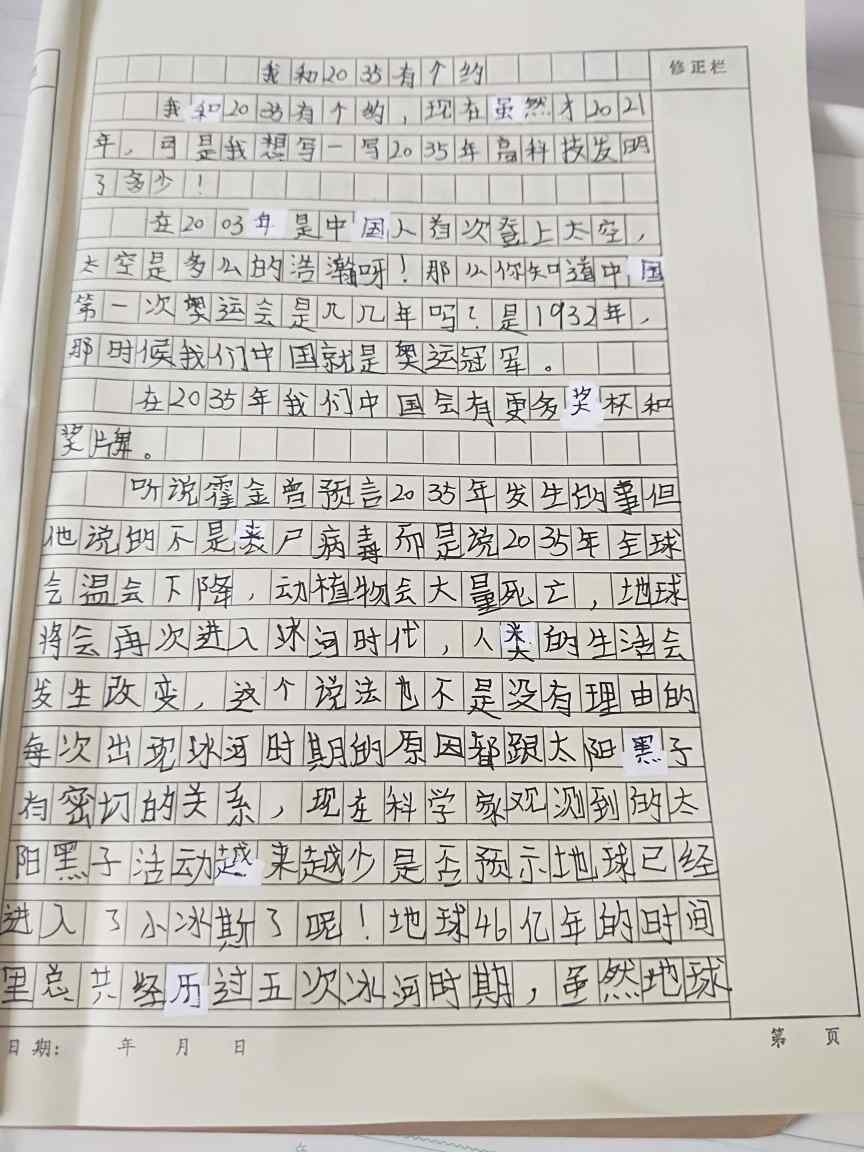 我和2035有个约
修正栏
我和2035有个约，现在虽然才2021
年，可是我想写一写2035年高科技发明
了多少！
在2003年是中国人首次登上太空，
太空是多么的浩瀚呀！那么你知道中国
第一次奥运会是几几年吗？是1932年，
那时候我们中国就是奥运冠军。
在2035年我们中国会有更多奖杯和
奖牌。
听说霍金曾预言2035年发生的事但
他说的不是丧尸病毒而是说2035年全球
气温会下降，动植物会大量死亡，地球
将会再次进入冰河时代，人类的生活会
发生改变，这个说法也不是没有理由的
每次出现冰河时期的原因都跟太阳黑子
有密切的关系，现在科学家观测到的太
阳黑子活动越来越少是否预示地球已经
进入了小冰斯了呢！地球46亿年的时间
里总共经历过五次冰河时期，虽然地球
日期： 年 月 日
第 页